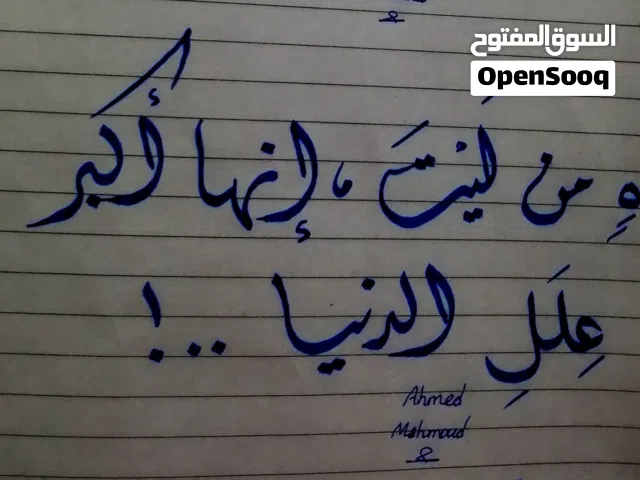 السوق المفتوح
OpenSooq
ه من لَيتَ، إنها أكبر
عِلَلِ الدنيا ..!
Ahmed
Mahmoud
&